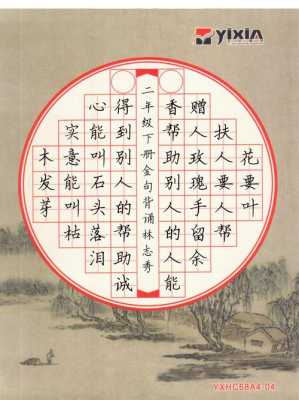 yixin
花要叶
扶人要人帮
赠人玫瑰手留余
香帮助别人的人能
二年级下册金句背诵林志秀
得到别人的帮助诚
心能叫石头落泪
实意能叫枯
木发芽